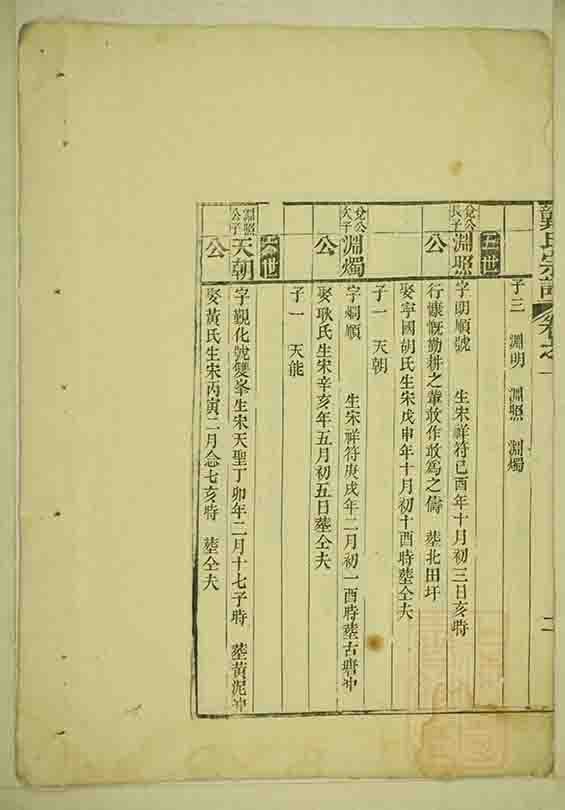 氏宗譜 卷之一
二
子三 淵明 淵照 淵燭
五世
兌公長子 淵照公 字明順號 生宋祥符己酉年十月初三日亥時
行慷慨勤耕之輩敢作敢爲之儔 塟北田圩
娶寧國胡氏生宋戊申年十月初十酉時塟仝夫
子一 天朝
兌公次子 淵燭公 字炯順 生宋祥符庚戌年二月初一酉時塟古塘冲
娶耿氏生宋辛亥年五月初五日塟仝夫
子一 天能
六世
淵照公子 天朝公 字覲化號雙峯生宋天聖丁卯年二月十七子時 塟黃泥冲
娶黃氏生宋丙寅二月念七亥時 塟仝夫